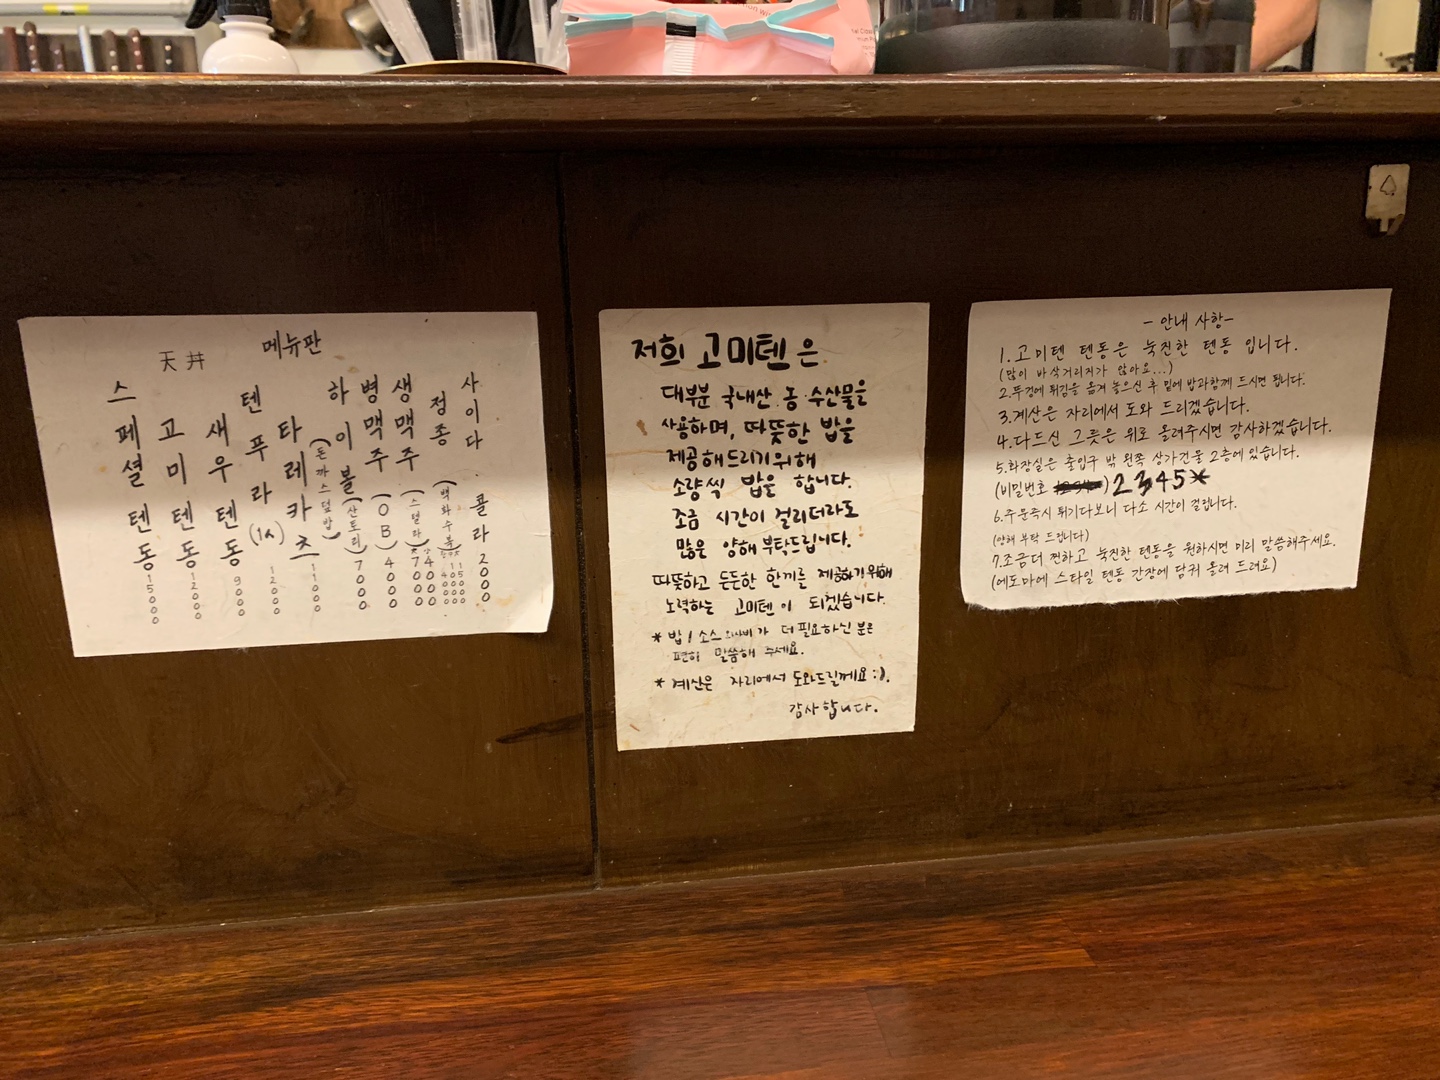 메뉴판
天丼
스페셜텐동 15000
고미텐동 12000
새우텐동 9000
텐푸라(1人) 12000
타레카츠(돈까스덮밥) 11000
하이볼(산토리) 7000
병맥주(OB) 4000
생맥주(스텔라)
정종(백화수복)
사이다
콜라 2000
저희 고미텐은
대부분 국내산 농·수산물을
사용하며, 따뜻한 밥을
제공해드리기위해
소량씩 밥을 합니다.
조금 시간이 걸리더라도
많은 양해 부탁드립니다.
따뜻하고 든든한 한끼를 제공하기위해
노력하는 고미텐이 되겠습니다.
* 밥/소스 와사비가 더 필요하신 분은
편히 말씀해 주세요.
* 계산은 자리에서 도와드릴께요 :).
감사합니다.
- 안내 사항-
1. 고미텐 텐동은 눅진한 텐동 입니다.
(많이 바삭거리지가 않아요...)
2. 뚜껑에 튀김을 옮겨 놓으신 후 밑에 밥과함께 드시면 됩니다.
3. 계산은 자리에서 도와 드리겠습니다.
4. 다드신 그릇은 위로 올려주시면 감사하겠습니다.
5. 화장실은 출입구 밖 왼쪽 상가건물 2층에 있습니다.
(비밀번호 ) 2345*
6. 주문즉시 튀기다보니 다소 시간이 걸립니다.
(양해 부탁 드립니다)
7. 조금더 찐하고 눅진한 텐동을 원하시면 미리 말씀해주세요.
(에도마에 스타일 텐동 간장에 담궈 올려 드려요)